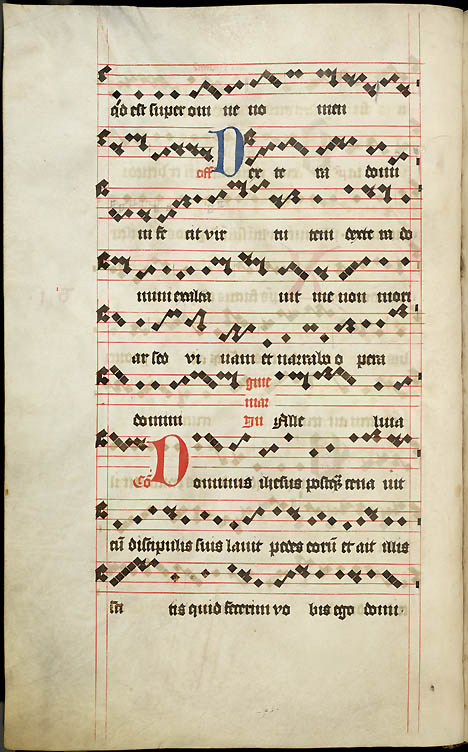 qd est super om ne no men
off Dex te ra domi
ni fe cit vir tu tem dexte ra do
mini exalta uit me non mori
ar seo vi uam et narrabo o pera
domini Alle luia
Co Dominus ihesus postq cena uit
cu discipulis suis lauit pedes eoru et ait illis
sci tis quid fecerim vo bis ego domi